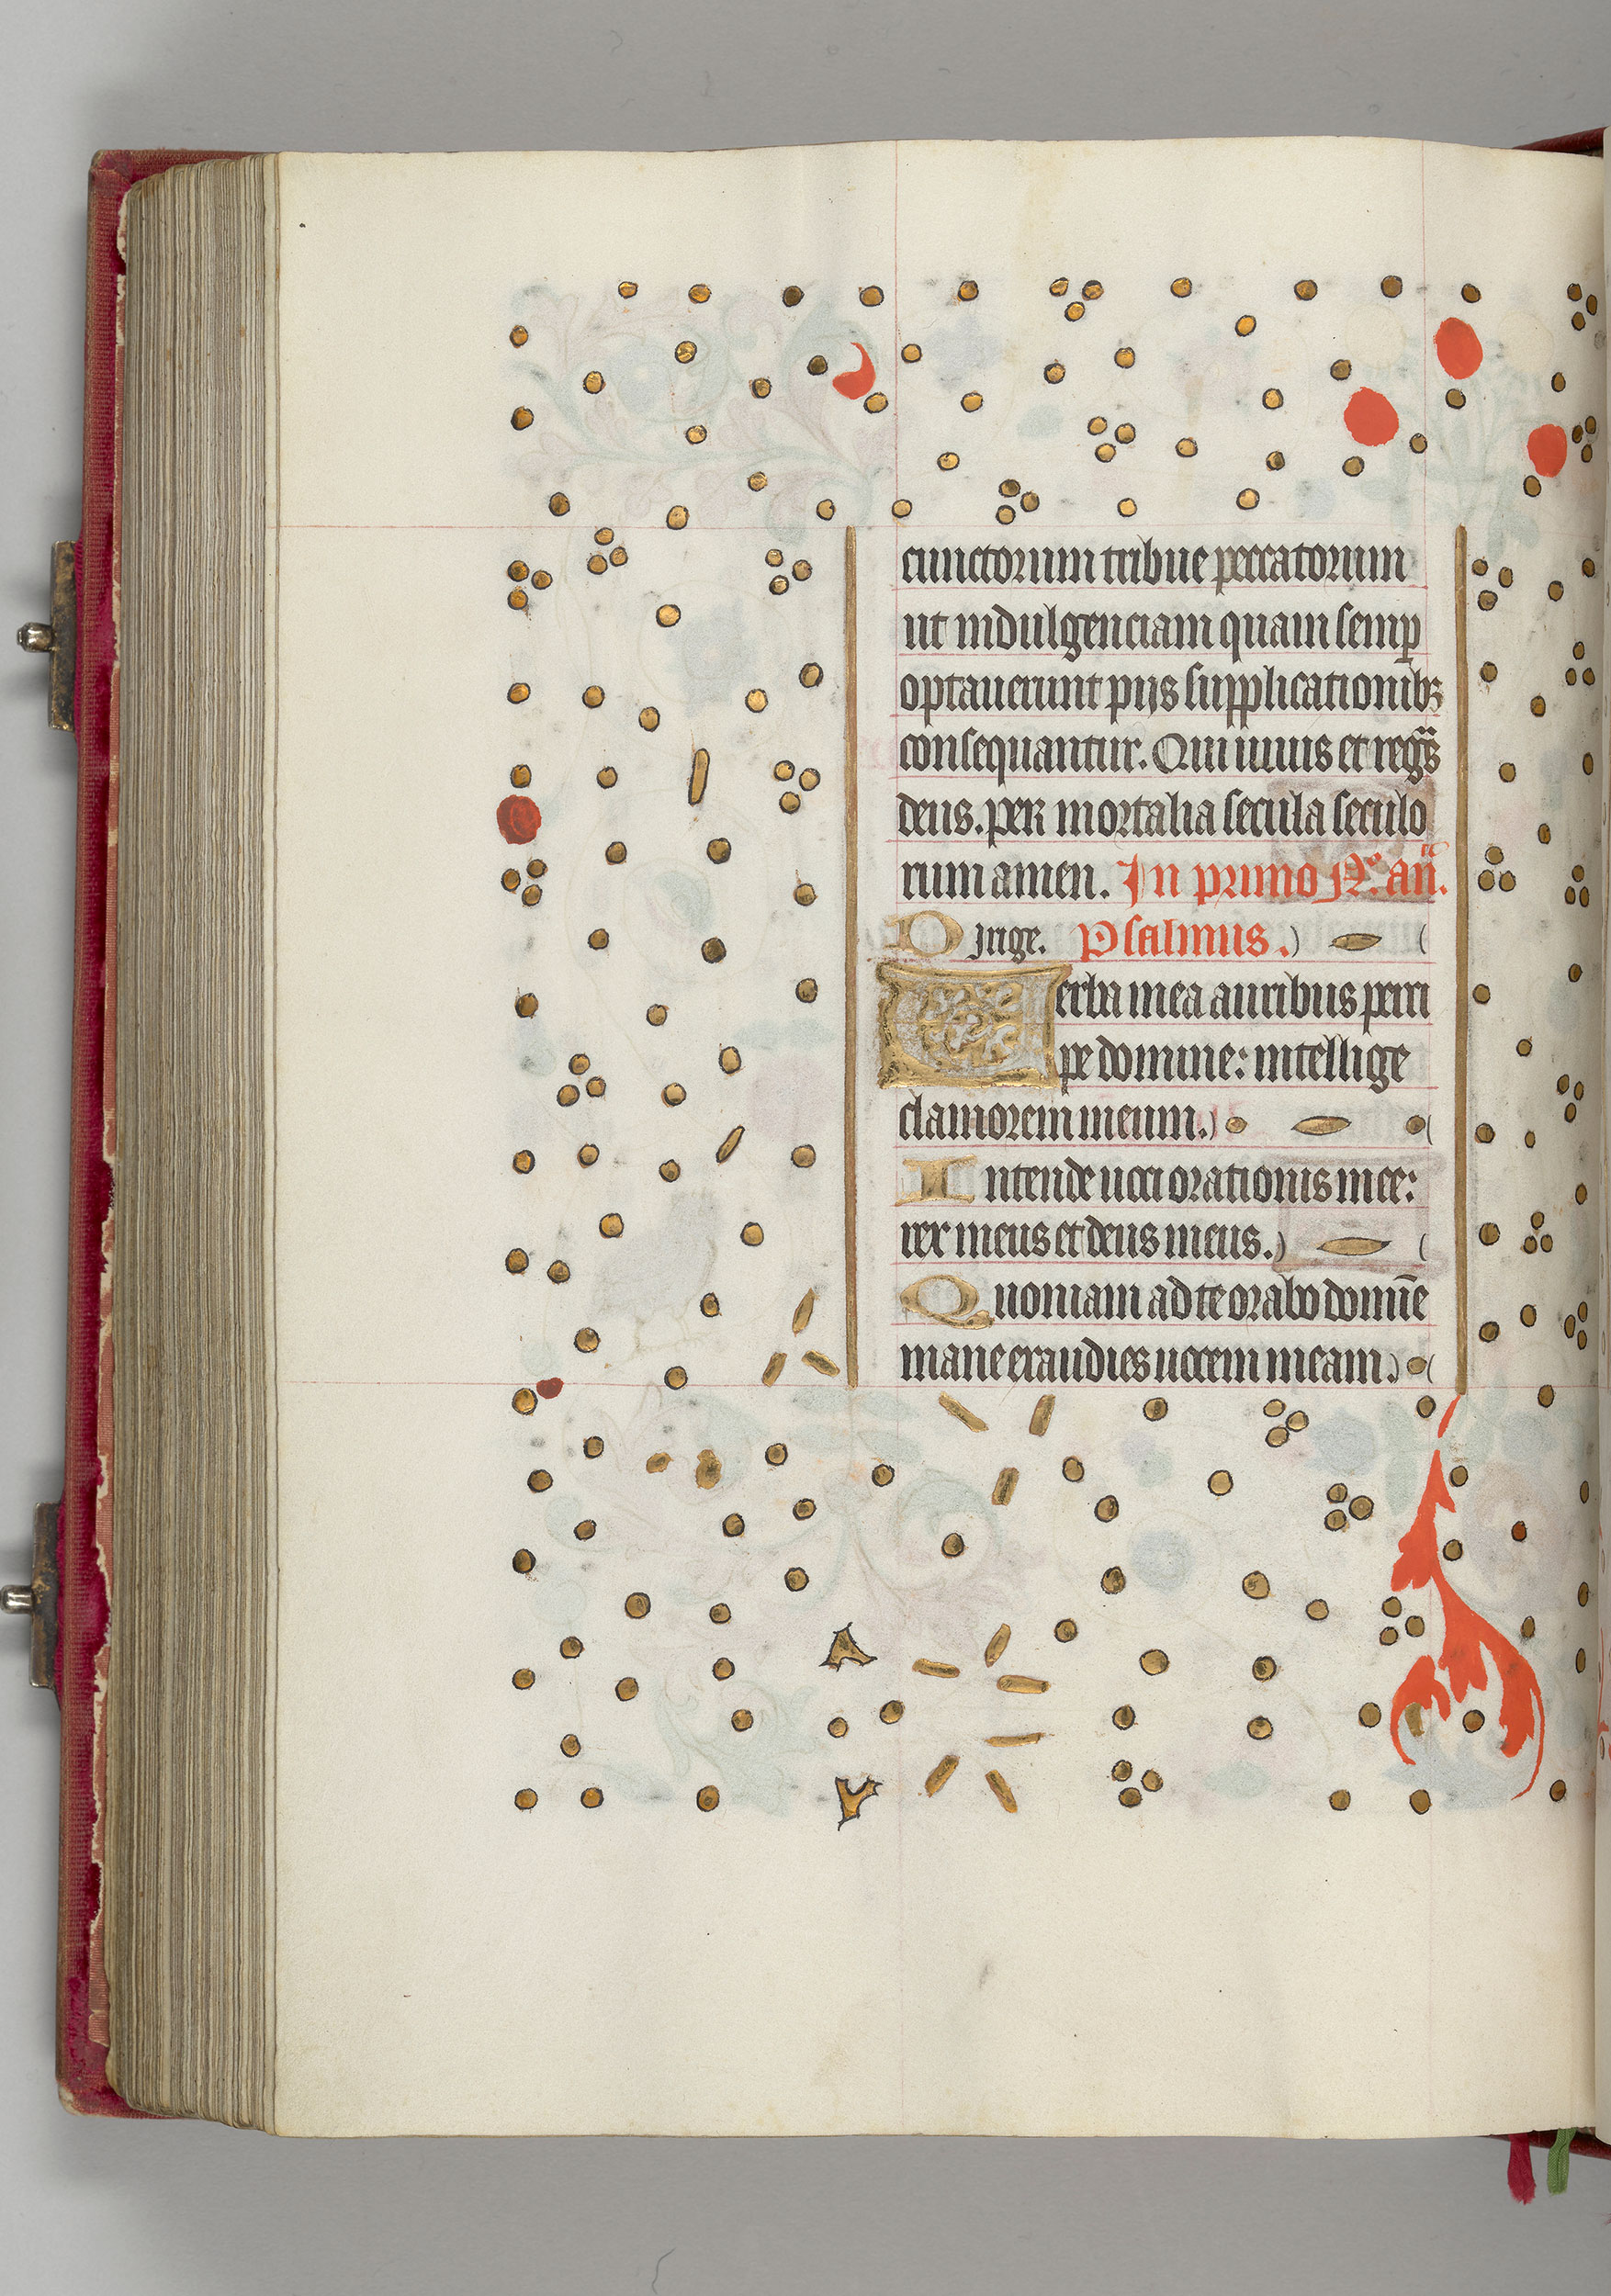 cunctorum tribue peccatorum
ut indulgenciam quam semp
optauerunt pijs supplicationibꝫ
consequantur. Qui uiuis et regs
deus. per mortalia secula seculo
rum amen. In primo Nº. an̄.
Dirige. Psalmus.
Verba mea auribus perci
pe domine: intellige
clamorem meum.
Intende uoci orationis mee:
rex meus et deus meus.
Quoniam ad te orabo domīe
mane exaudies uocem meam.